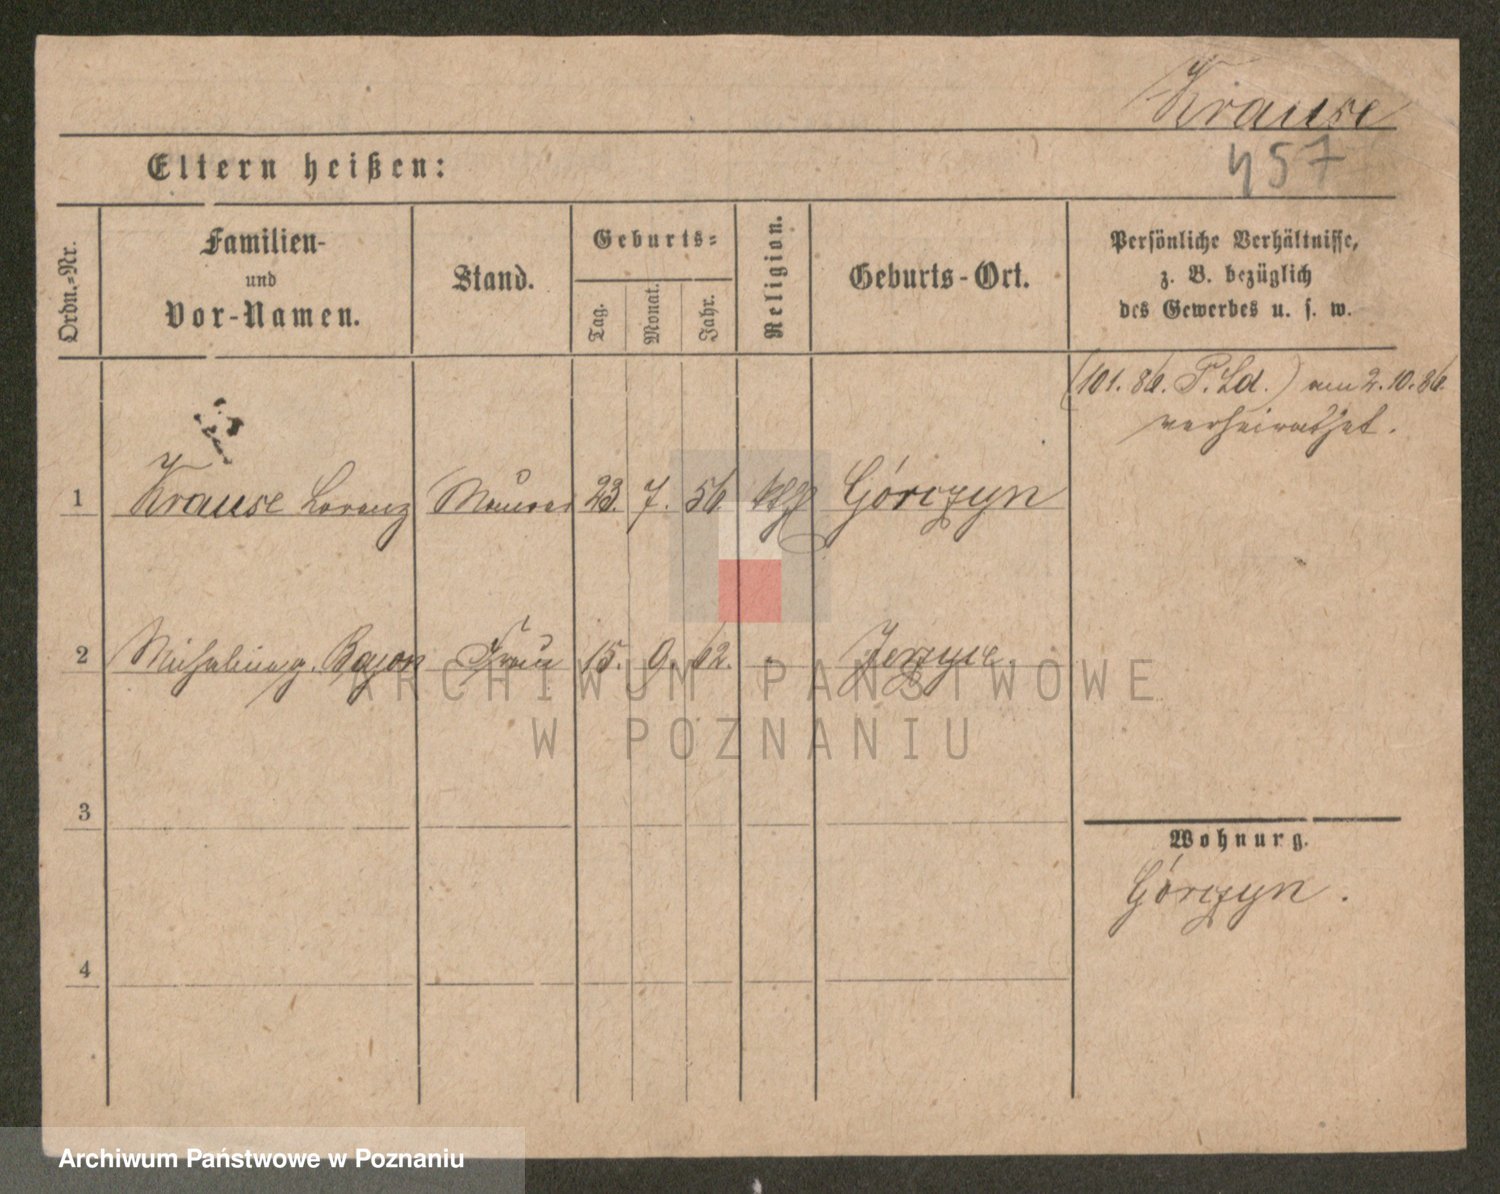 Krause
457
Eltern heißen:
Ordn.-Nr.
Familien-
und
Vor-Namen.
Stand.
Geburts-
Tag.
Monat.
Jahr.
Religion.
Geburts-Ort.
Persönliche Verhältnisse,
z. B. bezüglich
des Gewerbes u. s. w.
(101. 86. P. Ld.) am 2.10.86.
verheirathet.
1 Krause Lorenz Maurer 23. 7. 56. Górczyn
2 Bajon Frau 15. 9. 62.
3
Wohnung.
Górczyn.
4
ARCHIWUM PAŃSTWOWE
W POZNANIU
Archiwum Państwowe w Poznaniu